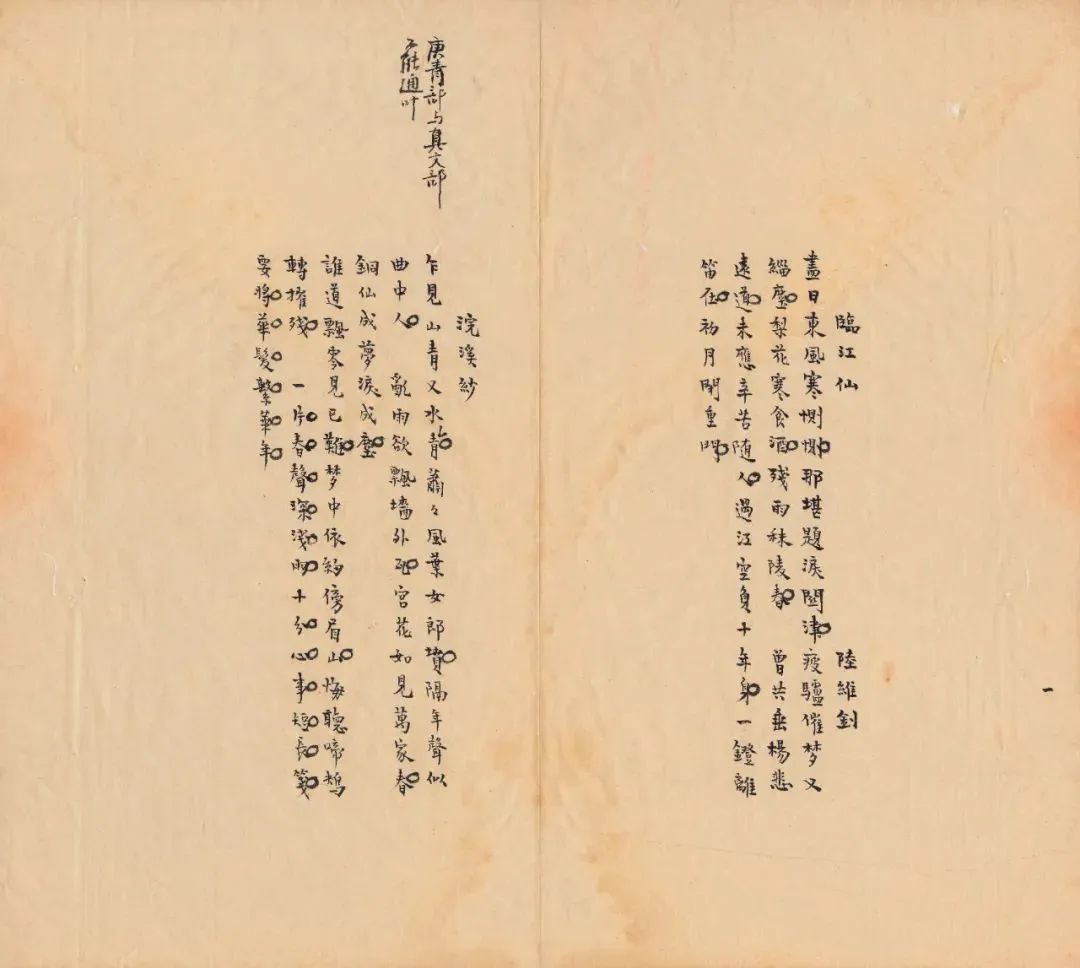 臨江仙　陸維釗
盡日東風寒惻惻那堪題淚關津疲驢催梦又
緇塵梨花寒食酒殘雨秣陵春　曾共垂楊悲
遠道未應辛苦隨人過江空負十年身一鐙離
笛在初月閉重門
庚青部与真文部
不能通叶
浣溪紗
乍見山青又水青蕭々風葉女郎墳隔年聲似
曲中人　亂雨欲飄墻外瓦宫花如見萬家春
銅仙成夢淚成塵
誰道飄零見已難梦中依約傍眉山悔聽啼鴂
轉摧殘　一片春聲深淺十分心事短長箋
要將華髮繫華年